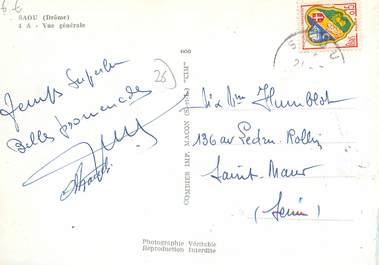 SAOU (Drôme)
4 A - Vue générale
26)
600
Temps Superbe
Belles promenades
COMBIER IMP. MACON (S.-et-L.) "CIM"
Mr Mme Humblot
136 av Ledru-Rollin
Saint-Maur
(Seine)
Photographie Véritable
Reproduction Interdite